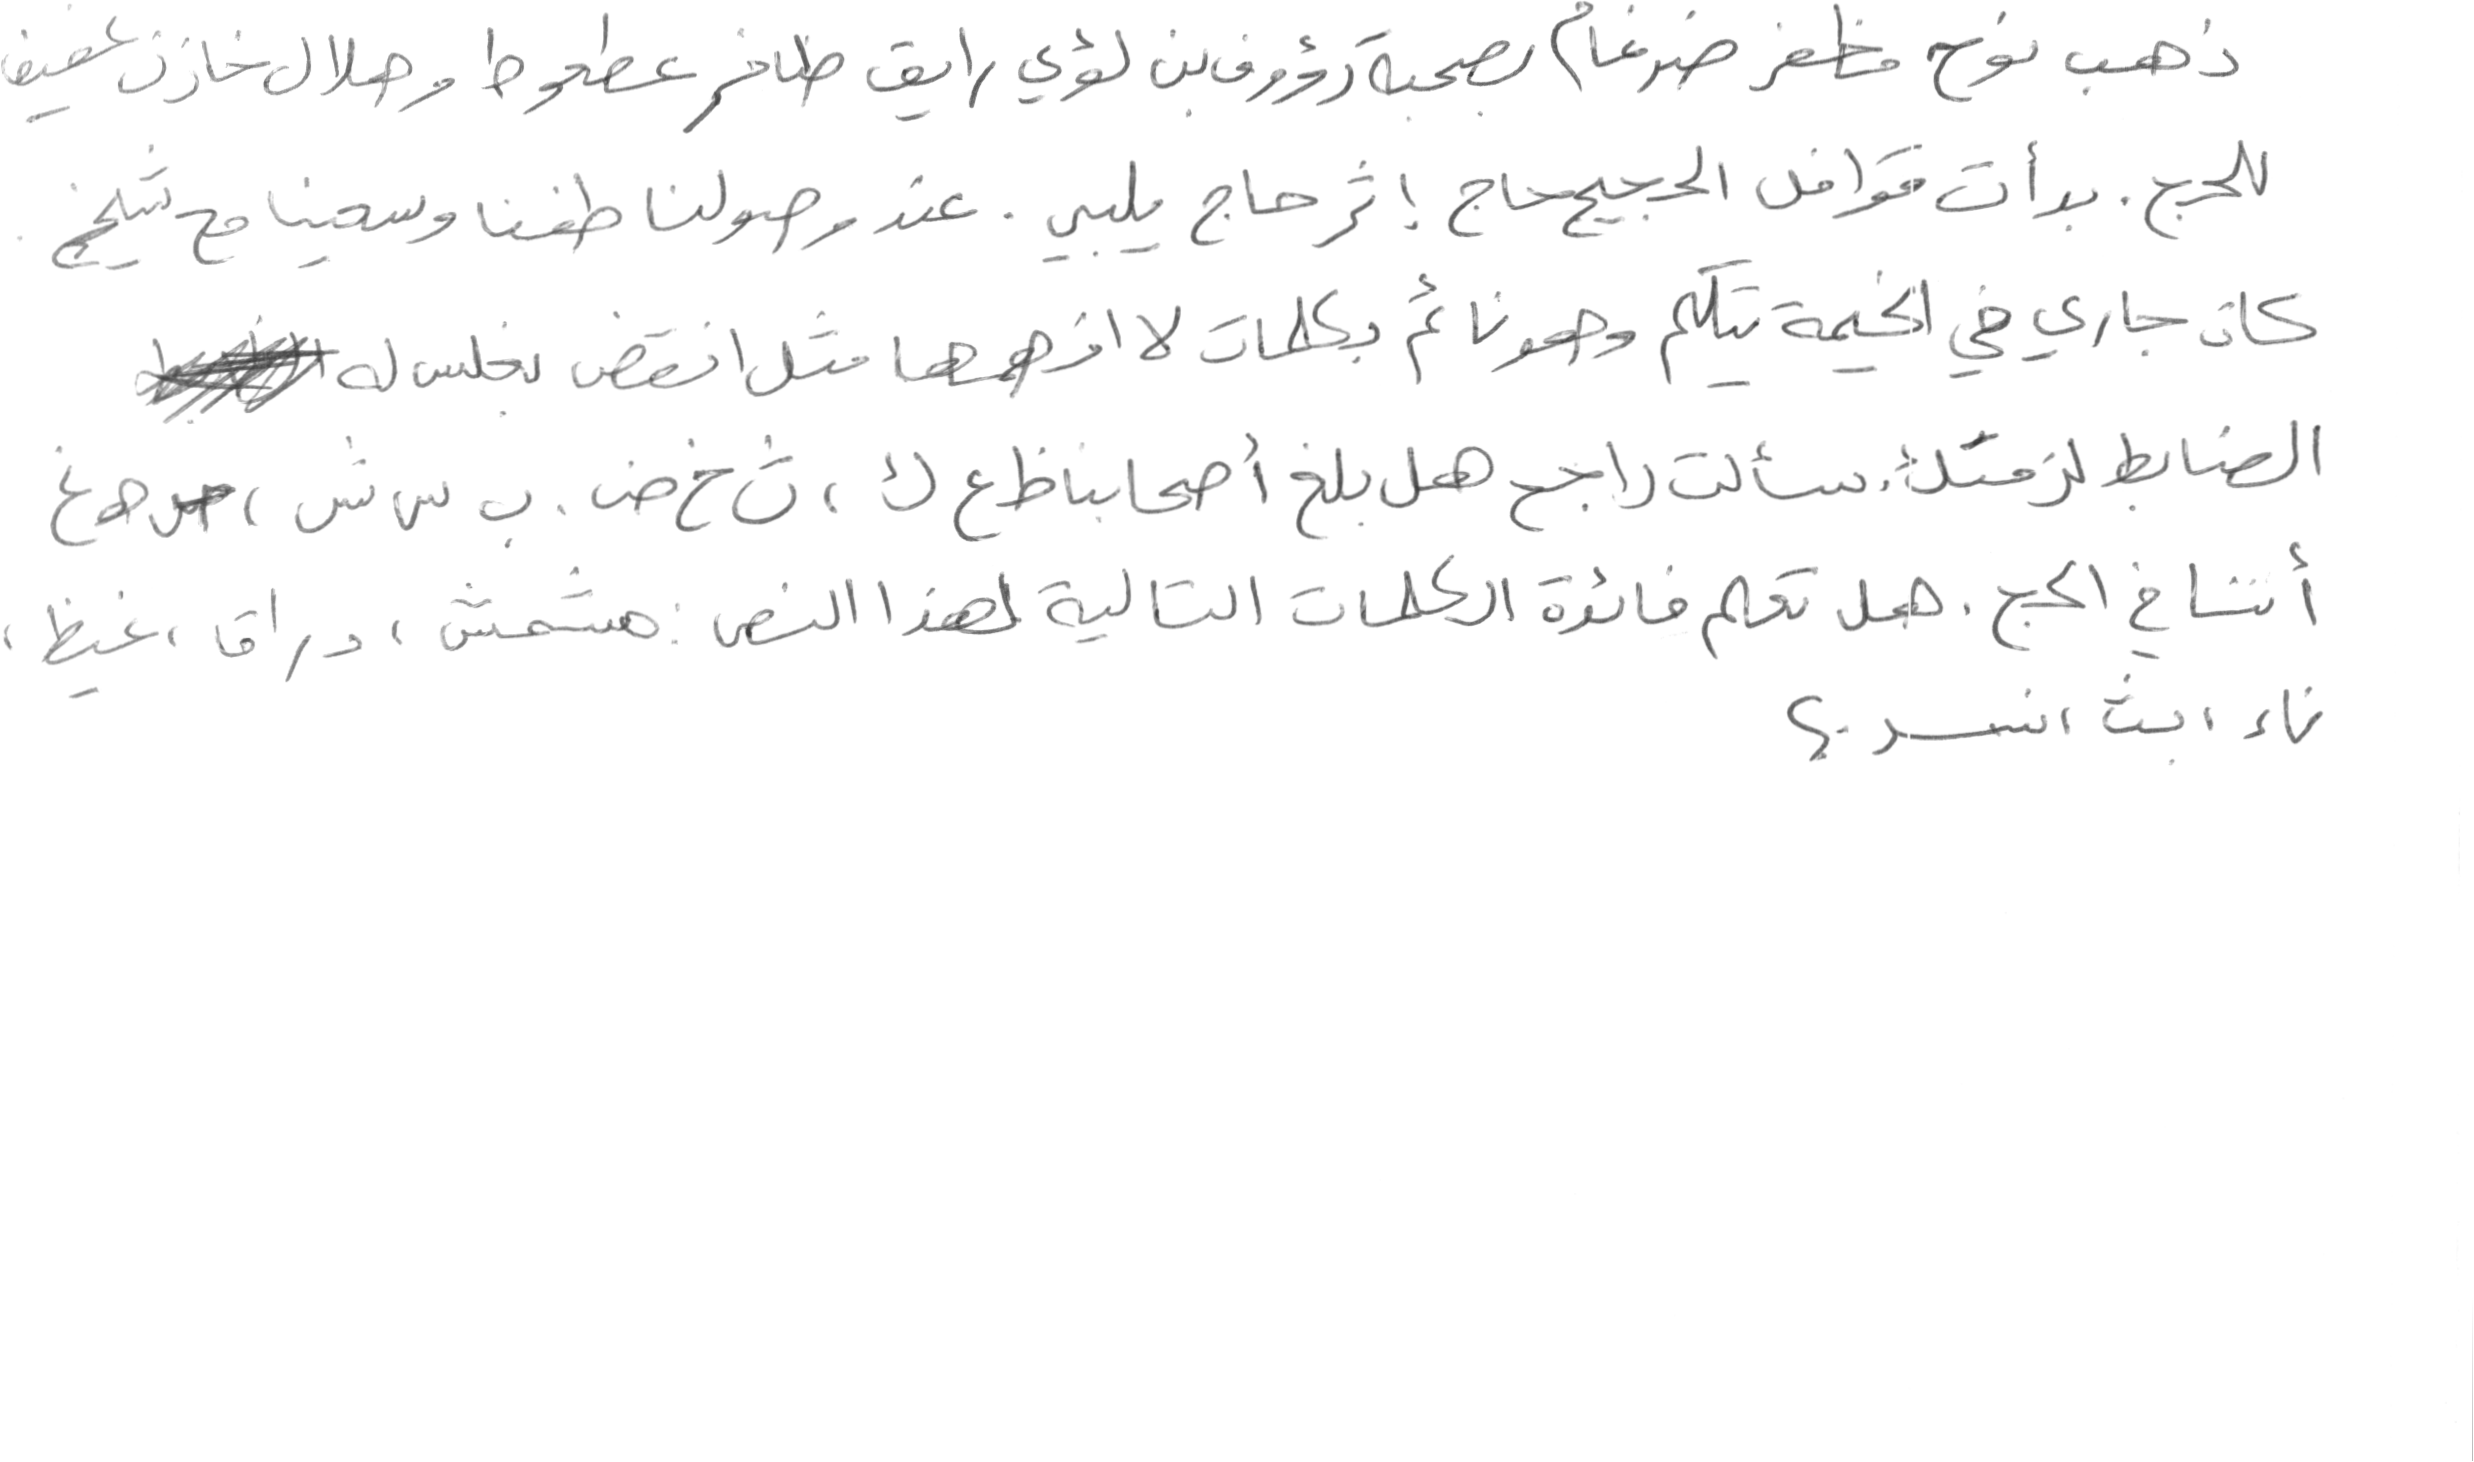 ذهب نوح مظفر ضرغام بصحبة رؤوف بن لؤي رايق ظافر عطعوط و هلال خازن عفيف
للحج. بدأت قوافل الحجيج حاج إثر حاج يلبي. عند وصولنا طفنا وسعينا مع شيخ.
كان جاري في الخيمة يتكلم وهو نائم بكلمات لا افهمها مثل انقض نجلس له
الضابط لزمتك. سألت راجح هل بلغ أصحابنا ظ ع ك، ث خ ض. ب س ش، ه غ
أنشا في الحج. هل تعلم فائدة الكلمات التالية لهذا النص: مشمش، دراقا، غيظ،
ناء، ابث، انسر.؟